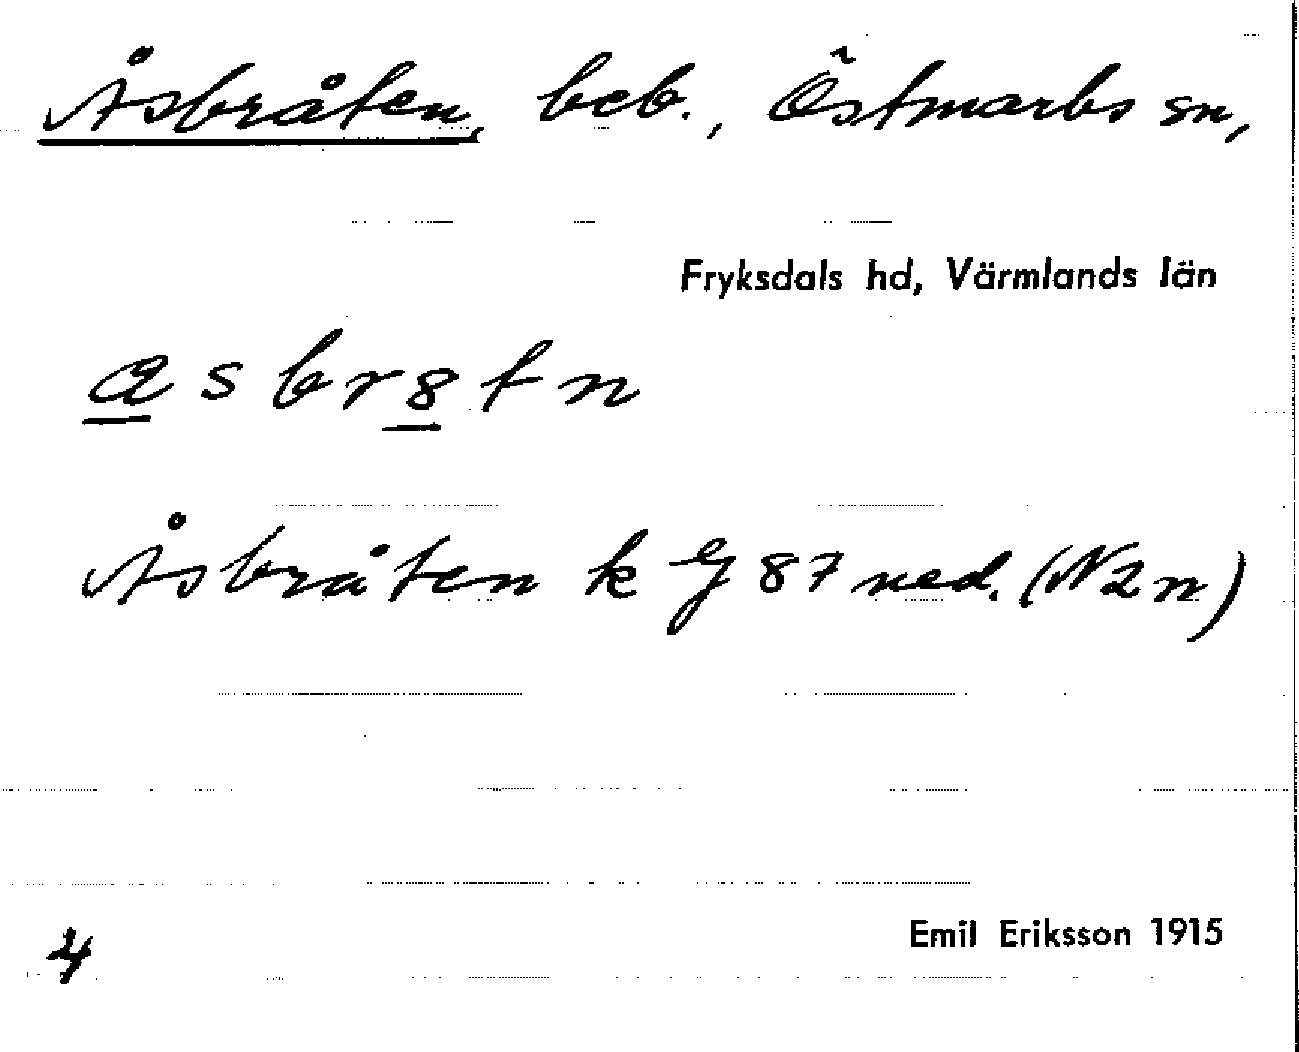 Åsbråten, beb., Östmarks sn,
Fryksdals hd, Värmlands län
a s b r 8 t n
Åsbråten k G 87 ned. (N2n)
Emil Eriksson 1915
4